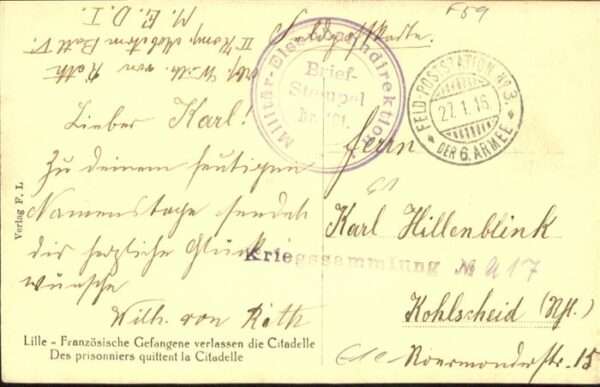 F59
Feldpostkarte.
Abs. Wilh. von Roth
II Komp. Arbeiter Batt V.
M. E. D. I.
Militär-Eisenbahndirektion
Brief-
Stempel
Nr. 101.
FELD-POSTSTATION Nº 3.
27.1.16
DER 6. ARMEE
Lieber Karl!
Zu deinem heutigen
Namenstage sendet
dir herzliche Glück-
wünsche
Wilh. von Roth
Herrn
Karl Hillenblink
Kriegssammlung № U17
Kohlscheid (Rhl.)
Roermonderstr. 15
Verlag F. L
Lille - Französische Gefangene verlassen die Citadelle
Des prisonniers quittent la Citadelle